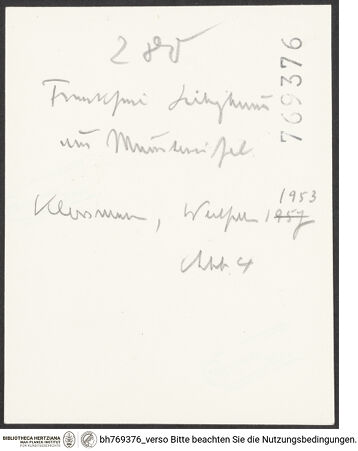 280
769376
aus Münstereifel.
1953
Westfalen 1957
Abb. 4
BIBLIOTHECA HERTZIANA
MAX-PLANCK-INSTITUT
FÜR KUNSTGESCHICHTE
bh769376_verso Bitte beachten Sie die Nutzungsbedingungen.